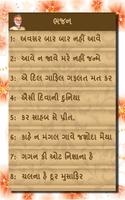 ભજન
1: અવસર બાર બાર નહીં આવે
2: આવે ન જાવે મરે નહીં જન્મે
3: એ દિલ ગાફિલ ગફલત મત કર
4: ઐસી દિવાની દુનિયા
5: કર સાહબ સે પ્રીત
6: કાહે ન મંગલ ગાવે જશોદા મૈયા
7: ગગન કી ઓટ નિશાના હૈ
8: ચલના હૈ દૂર મુસાફિર